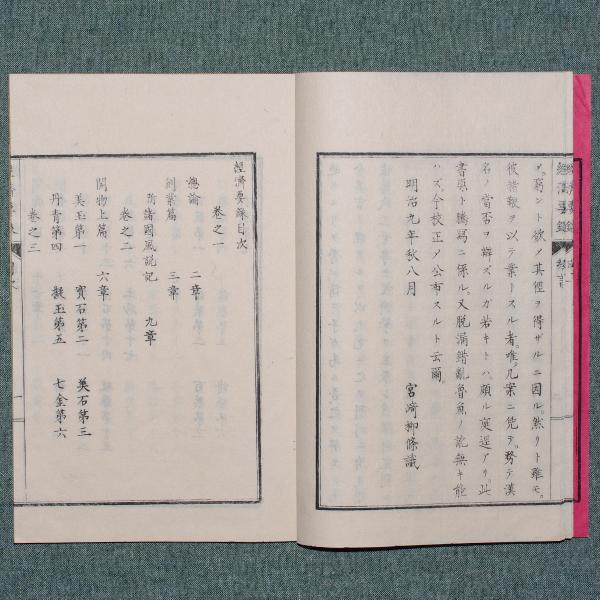 ヲ。弱ント欲ノ其俚ヲ得ザルニ因ル。然リト雖モ。
彼稗販ヲ以テ業トスル者。唯几案ニ凭テ。務テ漢
名ノ當否ヲ辯ズルガ若キトハ。顧ル逕アリ。此
書原ト騰寫ニ係ル。又脱漏錯亂魯魚ノ訛無キ能
ハズ。今校正ノ公布スルト云爾。
明治九年秋八月
宮﨑柳條識
經濟要錄目次
卷之一
總論 二章
創業篇 三章
附諸國風説記 九章
卷之二
開物上篇 六章
美玉第一 寶石第二 美石第三
丹青第四 擬玉第五 七金第六
卷之三